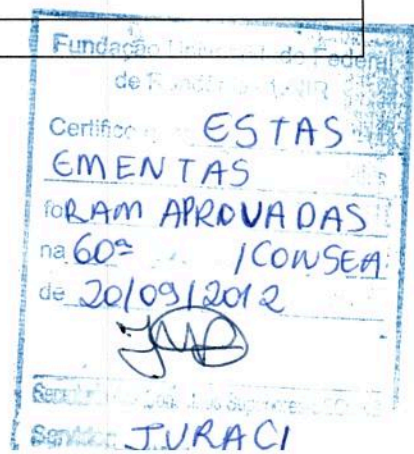 Fundação de Federal
de
Certifico ESTAS
EMENTAS
foRAM APROVADAS
na 60ª /CONSEA
de 20/09/2012
Servidor JURACI